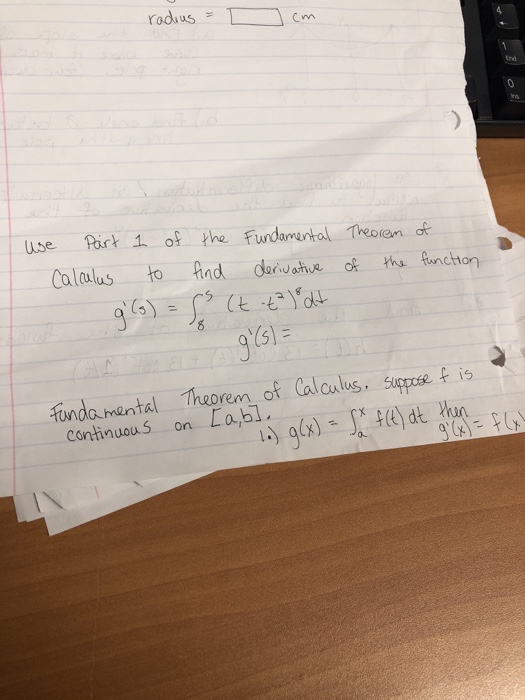 radius = cm
Use Part 1 of the Fundamental Theorem of
Calculus to find derivative of the function
g'(s) = ∫₈ˢ (t - t²)⁸ dt
g'(s) =
Fundamental Theorem of Calculus. suppose f is
continuous on [a,b].
1.) g(x) = ∫ₐˣ f(t) dt then
g'(x) = f(x)
4
1
End
0
Ins